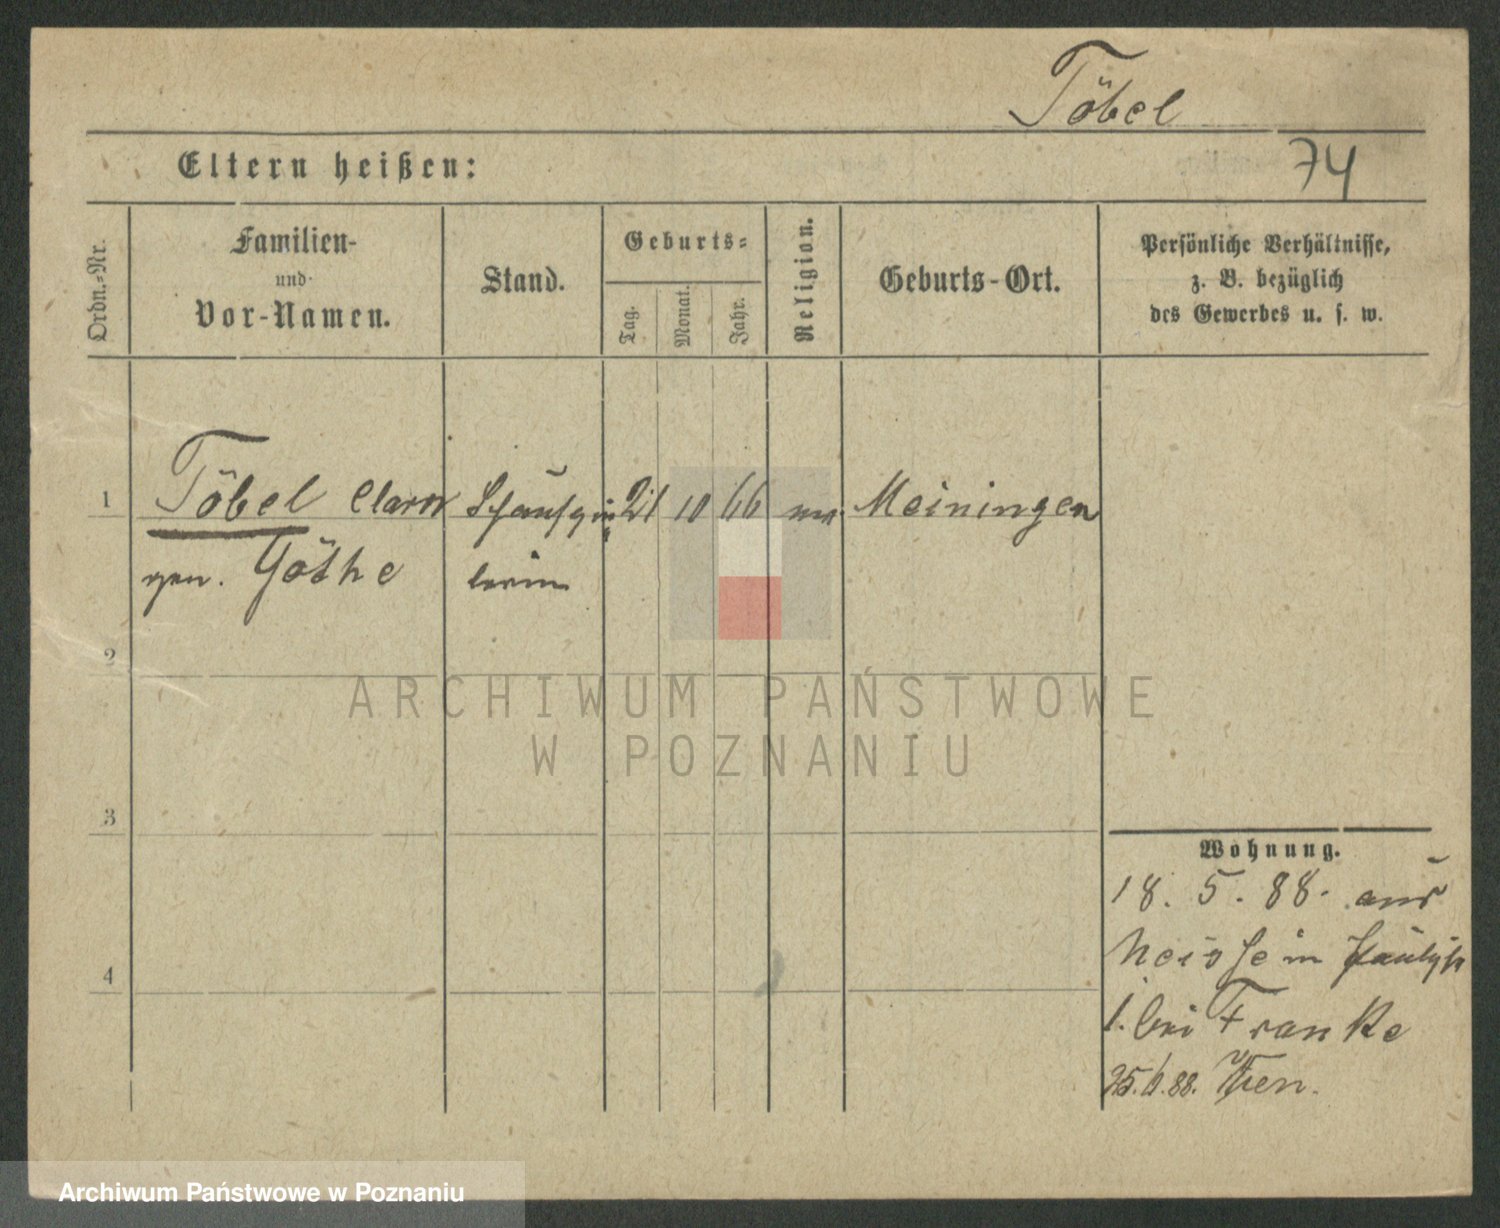 Töbel
Eltern heißen:
74
Ordn.-Nr.
Familien-
und
Vor-Namen.
Stand.
Geburts-
Tag.
Monat.
Jahr.
Religion.
Geburts-Ort.
Persönliche Verhältnisse,
z. B. bezüglich
des Gewerbes u. s. w.
1
Töbel Clara
gen. Göthe
Schauspie
lerin
21
10
66
Meiningen
2
ARCHIWUM PAŃSTWOWE
W POZNANIU
3
4
Wohnung.
18. 5. 88. aus
Neisse in
1. bei Franke
25.6.88.
Archiwum Państwowe w Poznaniu